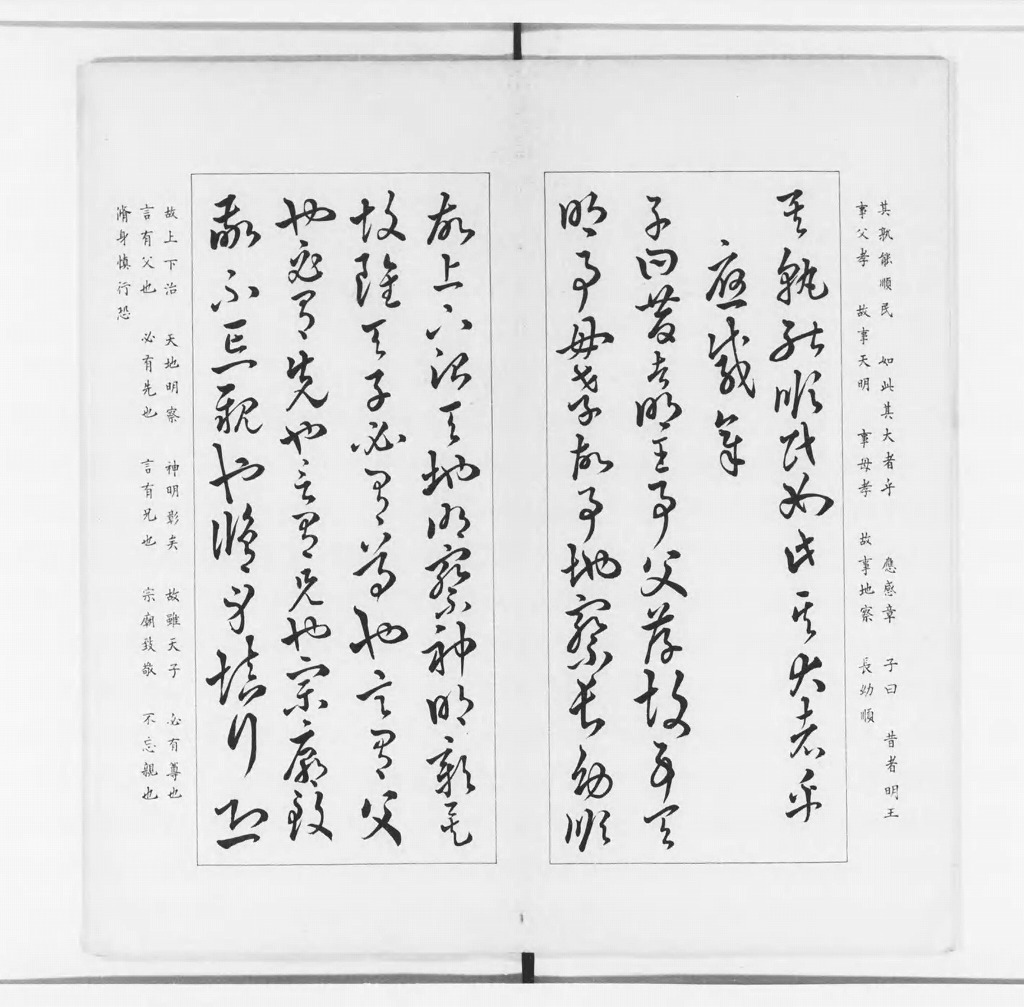 其孰能順民 如此其大者乎 應感章 子曰 昔者明王
事父孝 故事天明 事母孝 故事地察 長幼順
其孰能順民如此其大者乎
應感章
子曰昔者明王事父孝故事天
明事母孝故事地察長幼順
故上下治天地明察神明彰矣
故雖天子必有尊也言有父
也必有先也言有兄也宗廟致
敬不忘親也脩身慎行恐
故上下治 天地明察 神明彰矣 故雖天子 必有尊也
言有父也 必有先也 言有兄也 宗廟致敬 不忘親也
脩身慎行恐